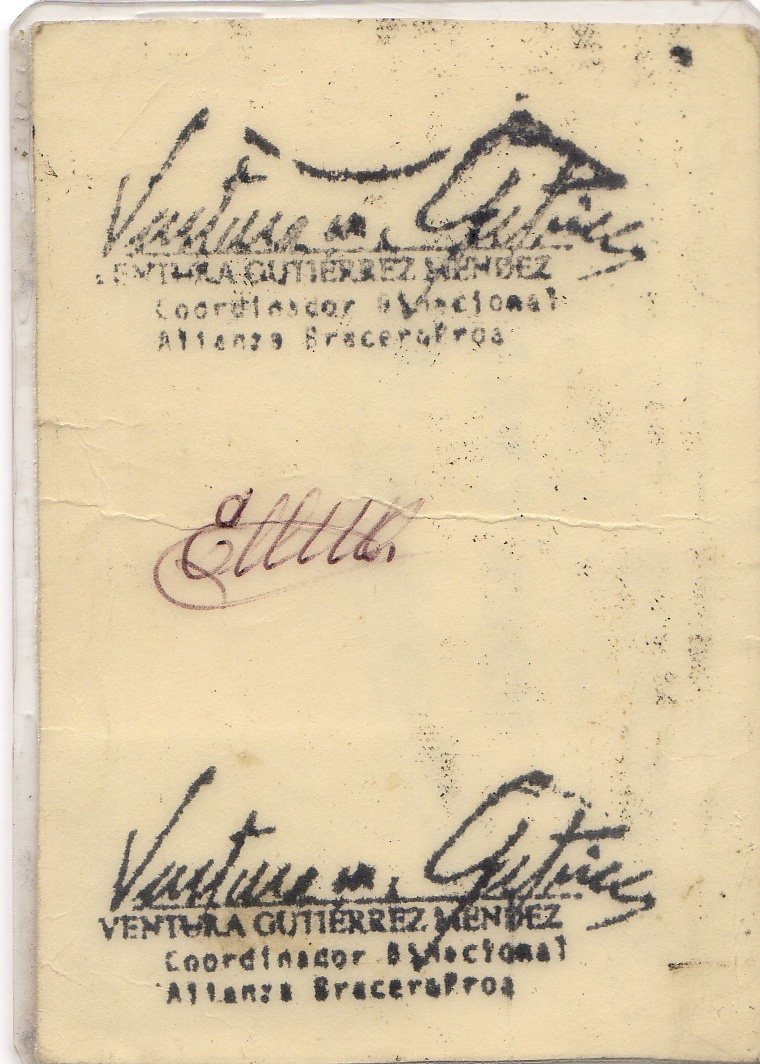 Ventura m. Gutiérrez
VENTURA GUTIÉRREZ MENDEZ
Coordinador Binacional
Alianza BraceroProa
Ventura m. Gutiérrez
VENTURA GUTIÉRREZ MENDEZ
Coordinador Binacional
Alianza BraceroProa